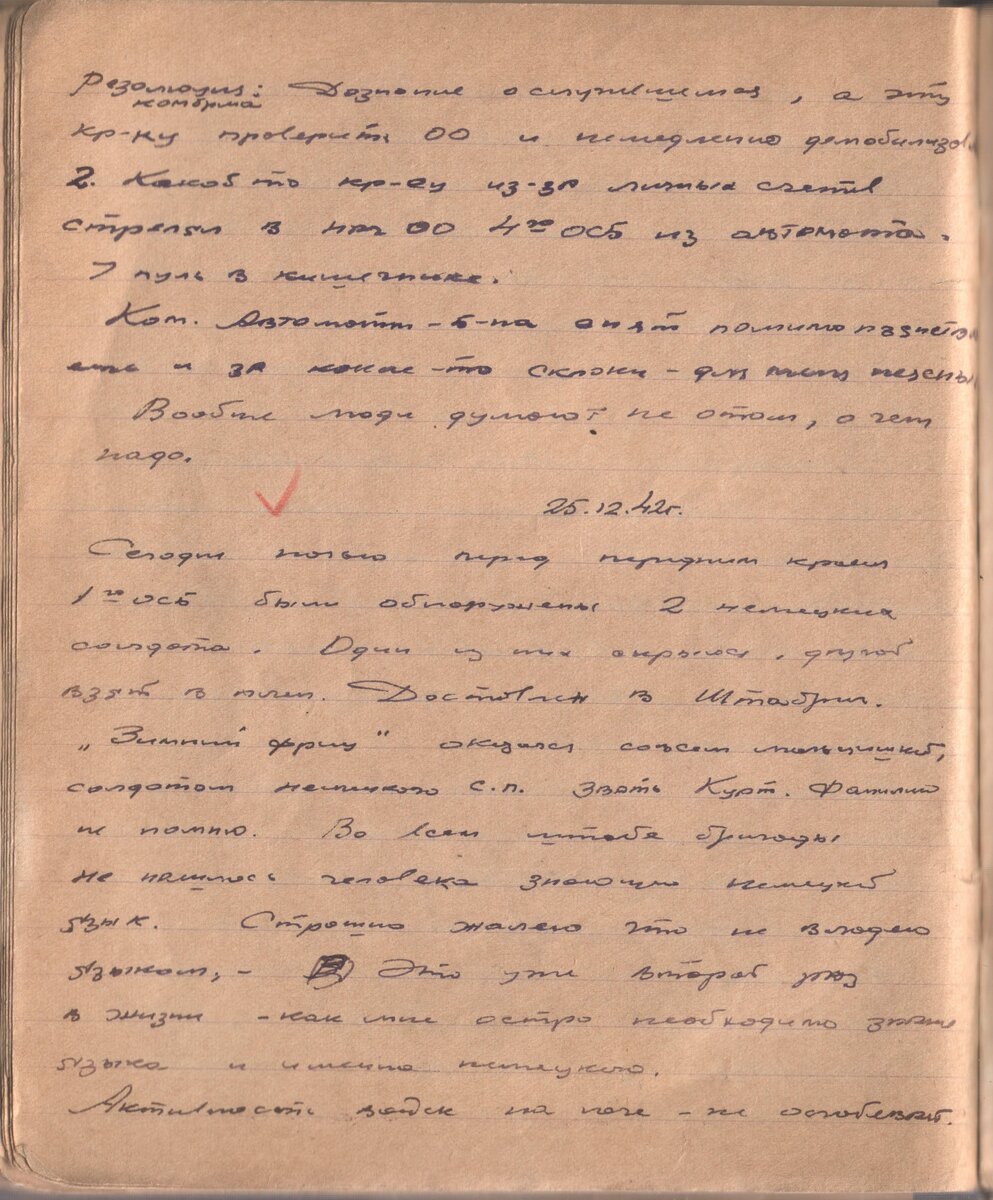 Резолюция: Дознание о случившемся, а эту
комбрига
кр-ку проверить ОО и немедленно демобилизов
2. Какой то кр-ец из-за личных счетов
стрелял в нач ОО 4го ОСБ из автомата.
7 пуль в кишечнике.
Ком. Автоматн-б-на снят помимо пьянств
еще и за какие-то склоки - для меня неясны
Вообще люди думают не о том, о чем
надо.
25.12.42г.
Сегодня ночью перед передним краем
1го ОСБ были обнаружены 2 немецких
солдата. Один из них скрылся, другой
взят в плен. Доставлен в Штабриг.
„Зимний фриц" оказался совсем мальчишкой,
солдатом немецкого с.п. Звать Курт. Фамилию
не помню. Во всем штабе бригады
не нашлось человека знающего немецкий
язык. Страшно жалею что не владею
языком, - Это уже второй раз
в жизни - как мне остро необходимо знание
языка и именно немецкого.
Активность войск на поле - не ослабевает.